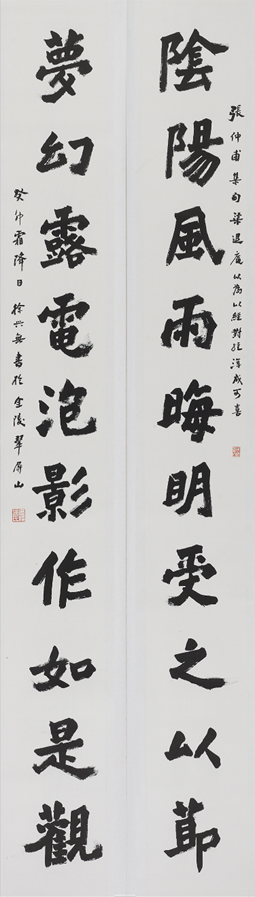 陰陽風雨晦明受之以節
張仲甫集句梁退庵以為以經對經渾成可喜
夢幻露電泡影作如是觀
癸卯霜降日徐興無書於金陵翠屏山